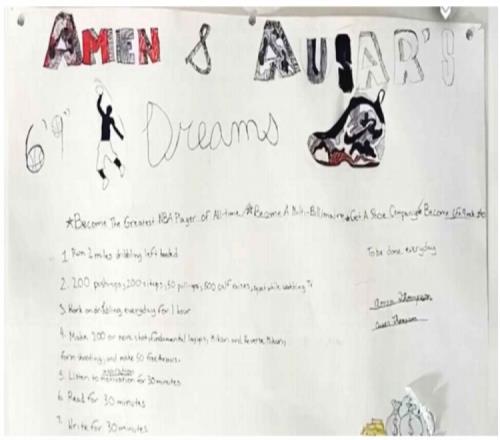 AMEN & AUSAR'S
6'9" Dreams
*Become The Greatest NBA Player of All-time/*Become A Multi-Billionaire*Get A Shoe Company*Become
1. Run 2 miles dribbling left handed
To be done everyday
2. 200 pushups, 200 situps, 50 pullups, 500 calf raises, squat while watching TV
3. Work on dribbling everyday for 1 hour
Amen Thompson
Ausar Thompson
4. Make 200 or more shots fundamental layups, Mikan and Reverse Mikan,
form shooting, and make 50 freethrows.
5. Listen to motivation for 30 minutes
6. Read for 30 minutes
7. Write for 30 minutes